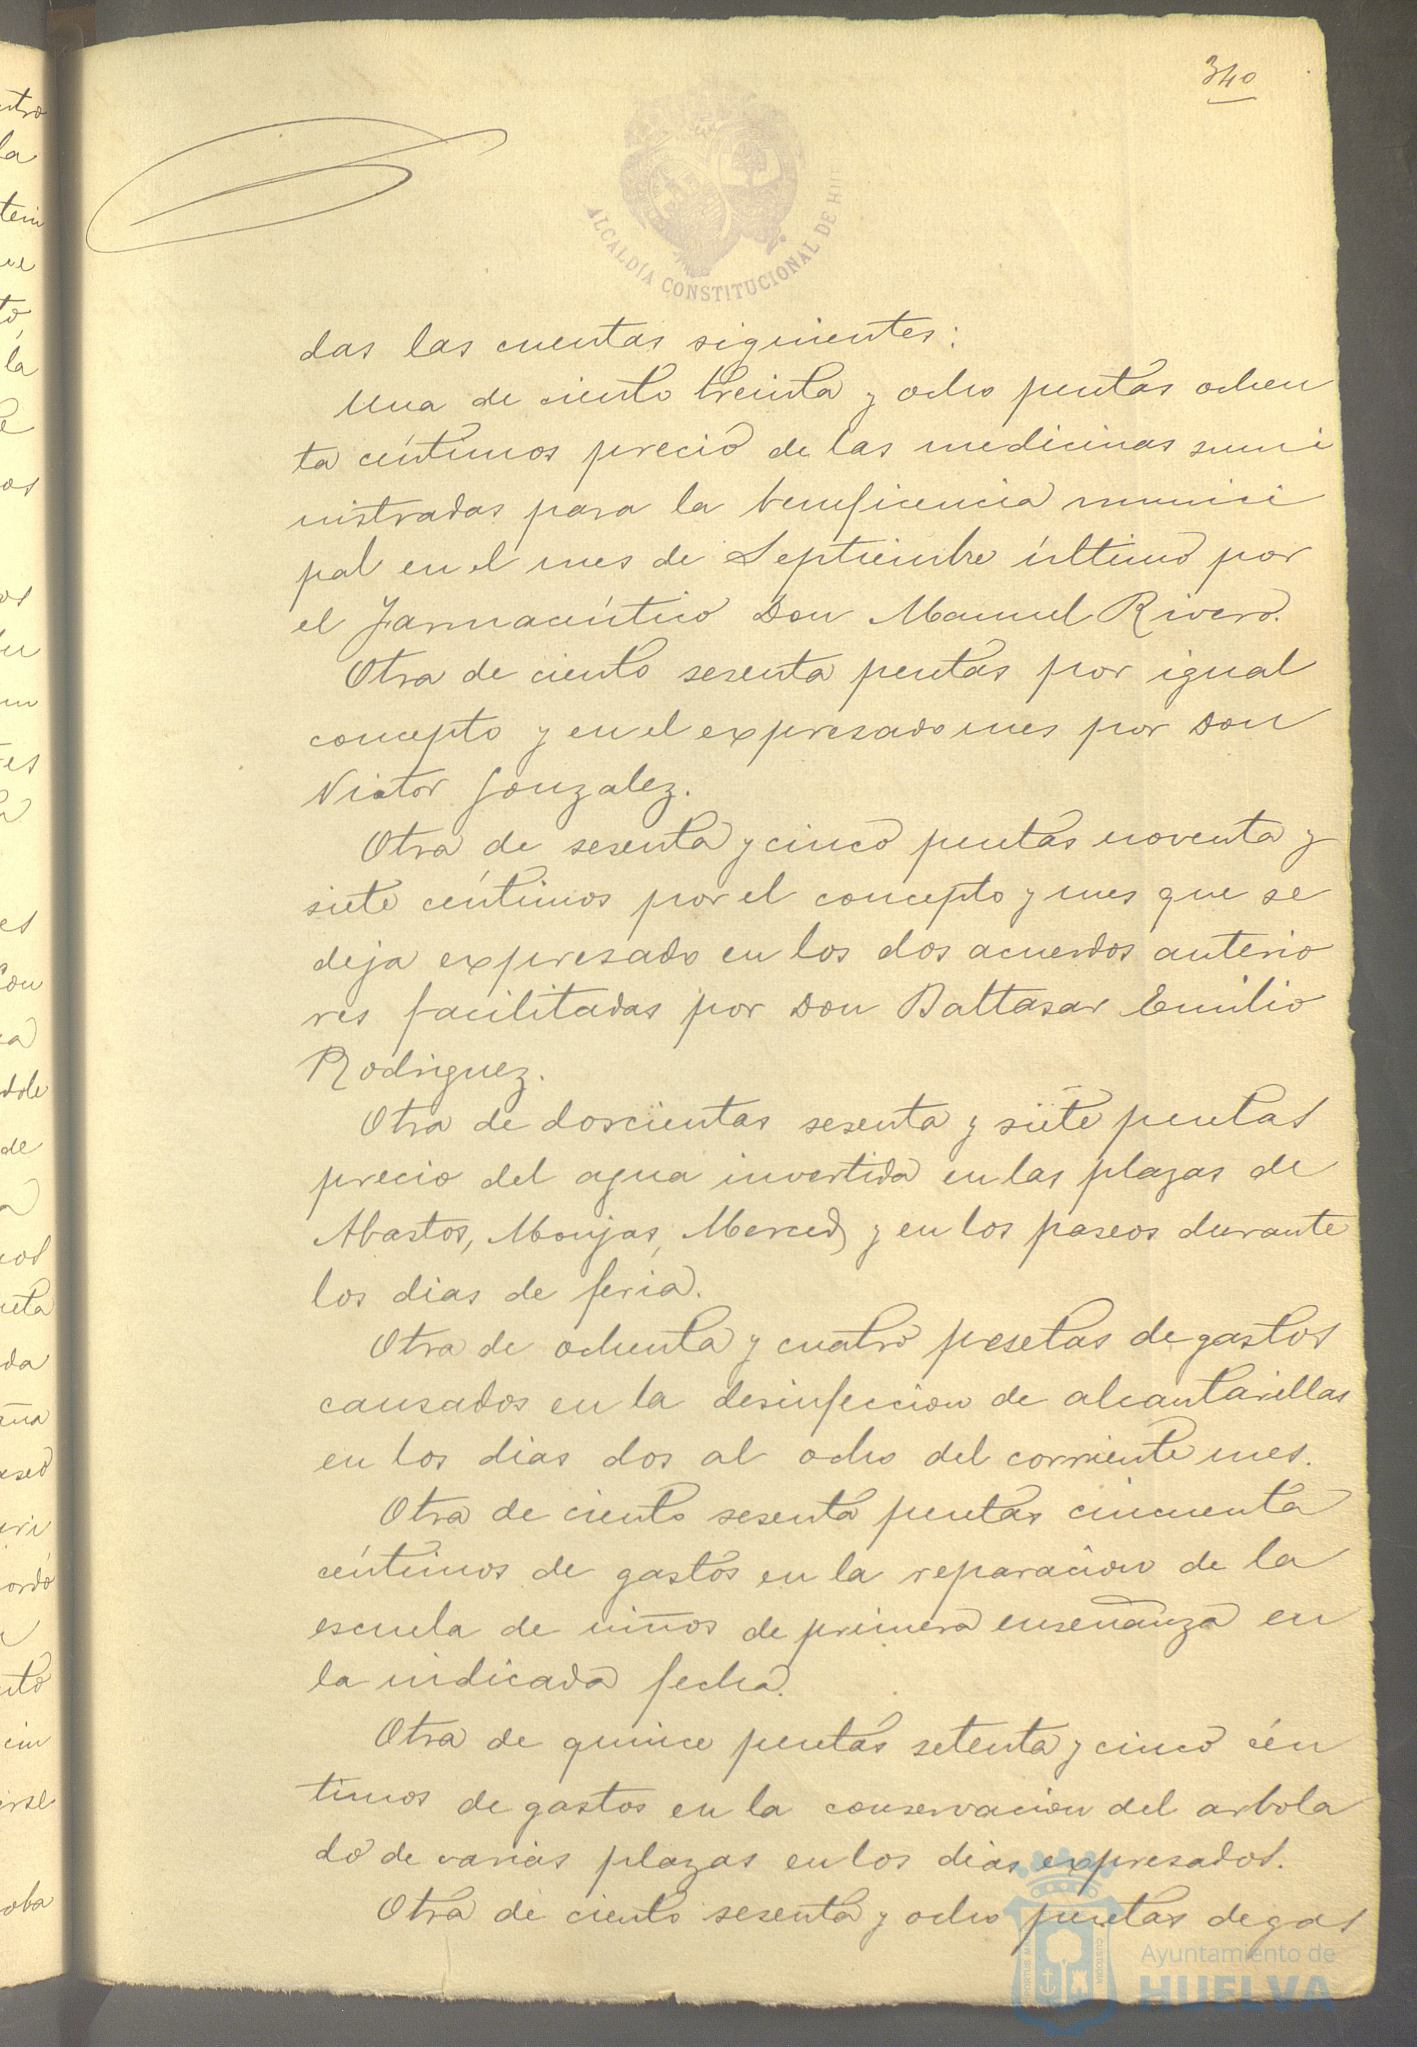 340
ALCALDÍA CONSTITUCIONAL DE HU
das las cuentas siguientes:
Una de ciento treinta y ocho pesetas ochen
ta céntimos precio de las medicinas sumi
nistradas para la beneficencia munici
pal en el mes de Septiembre último por
el Farmacéutico Don Manuel Rivero.
Otra de ciento sesenta pesetas por igual
concepto y en el expresado mes por Don
Victor Gonzalez.
Otra de sesenta y cinco pesetas noventa y
siete céntimos por el concepto y mes que se
deja expresado en los dos acuerdos anterio
res facilitadas por Don Baltasar Emilio
Rodriguez.
Otra de doscientas sesenta y siete pesetas
precio del agua invertida en las plazas de
Abastos, Monjas, Merced y en los paseos durante
los dias de feria.
Otra de ochenta y cuatro pesetas de gastos
causados en la desinfeccion de alcantarillas
en los dias dos al ocho del corriente mes.
Otra de ciento sesenta pesetas cincuenta
céntimos de gastos en la reparacion de la
escuela de niños de primera enseñanza en
la indicada fecha.
Otra de quince pesetas setenta y cinco cén
timos de gastos en la conservacion del arbola
do de varias plazas en los dias expresados.
Otra de ciento sesenta y ocho pesetas de gas
Ayuntamiento de
HUELVA